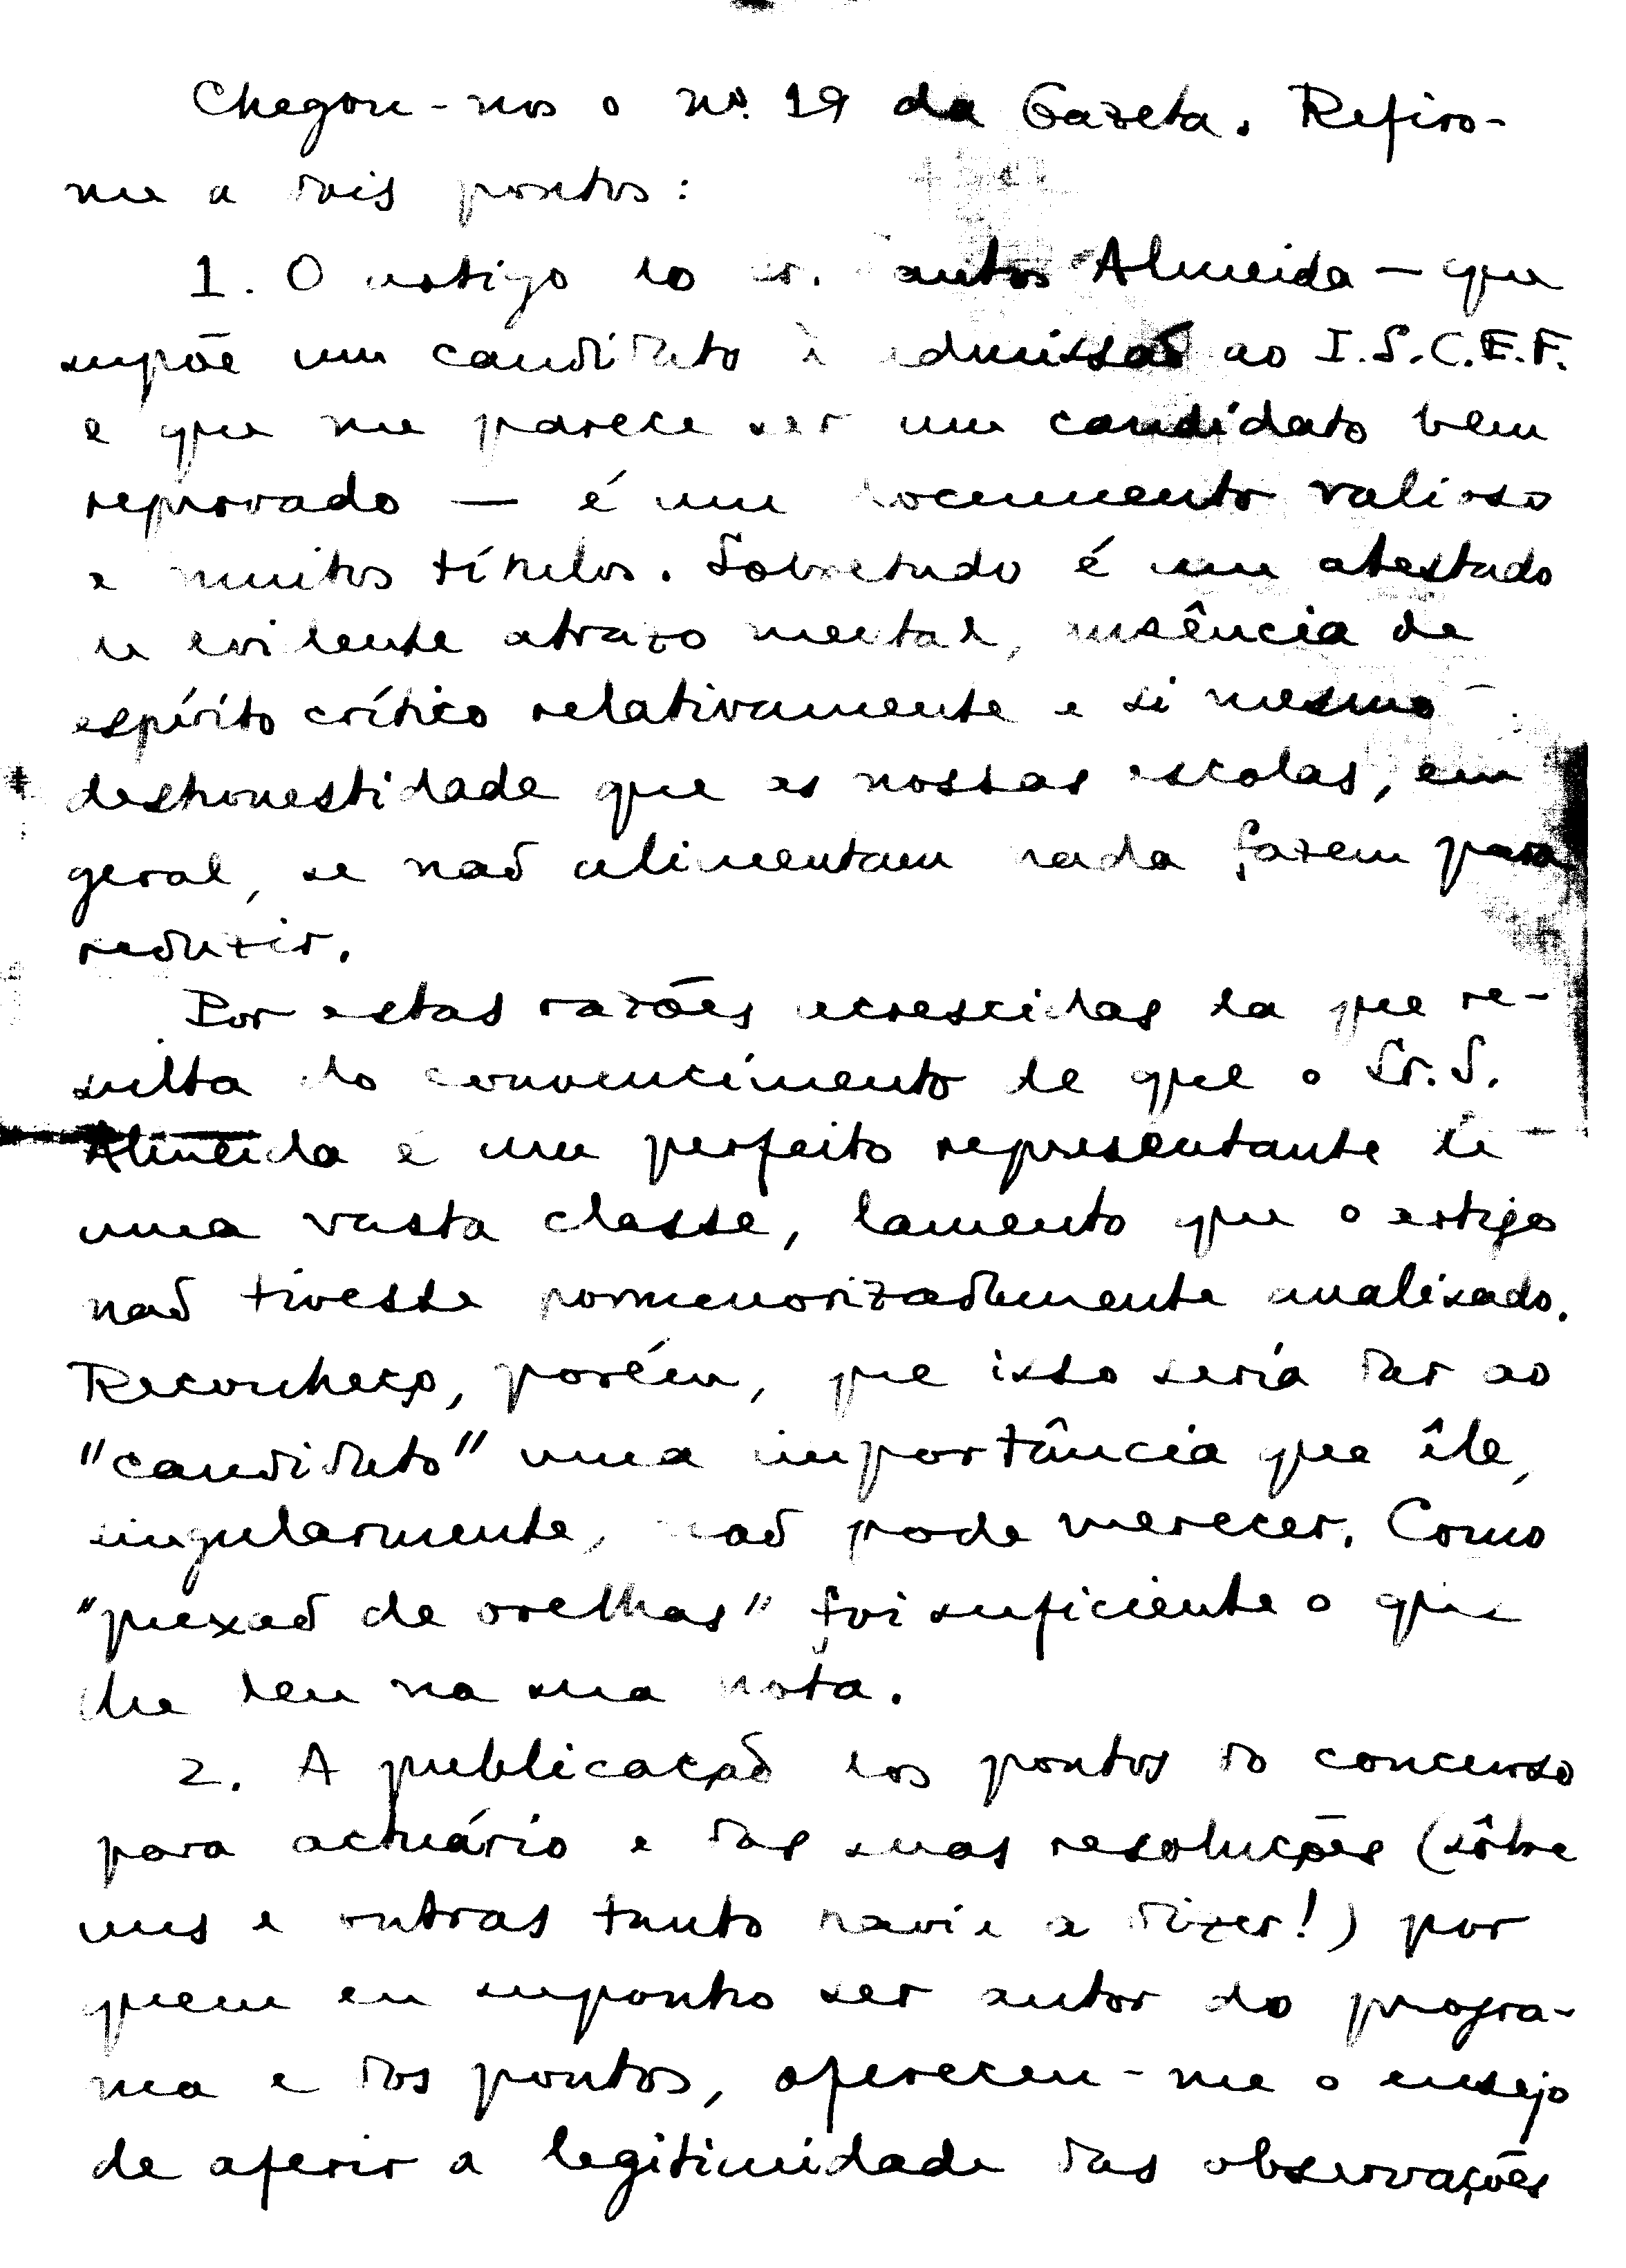 Chegou-nos o nº. 19 da Gazeta. Refiro-
me a dois pontos:
1. O artigo do sr. Santos Almeida — que
supõe um candidato à admissão ao I.S.C.E.F.
e que me parece ser um candidato bem
reprovado — é um documento valioso
a muitos títulos. Sobretudo é um atestado
de evidente atrazo mental, ausência de
espírito crítico relativamente a si mesmo
deshonestidade que as nossas escolas, em
geral, se não alimentam nada fazem para
reduzir.
Por estas razões acrescidas da que re-
sulta do convencimento de que o Sr. S.
Almeida é um perfeito representante de
uma vasta classe, lamento que o artigo
não tivesse pormenorizadamente analisado.
Reconheço, porém, que isso seria dar ao
"candidato" uma importância que êle,
singularmente, não pode merecer. Como
"puxão de orelhas" foi suficiente o que
lhe deu na sua nota.
2. A publicação dos pontos do concurso
para actuário e das suas resoluções (sôbre
uns e outras tanto havia a dizer!) por
quem eu suponho ser autor do progra-
ma e dos pontos, ofereceu-me o ensejo
de aferir a legitimidade das observações